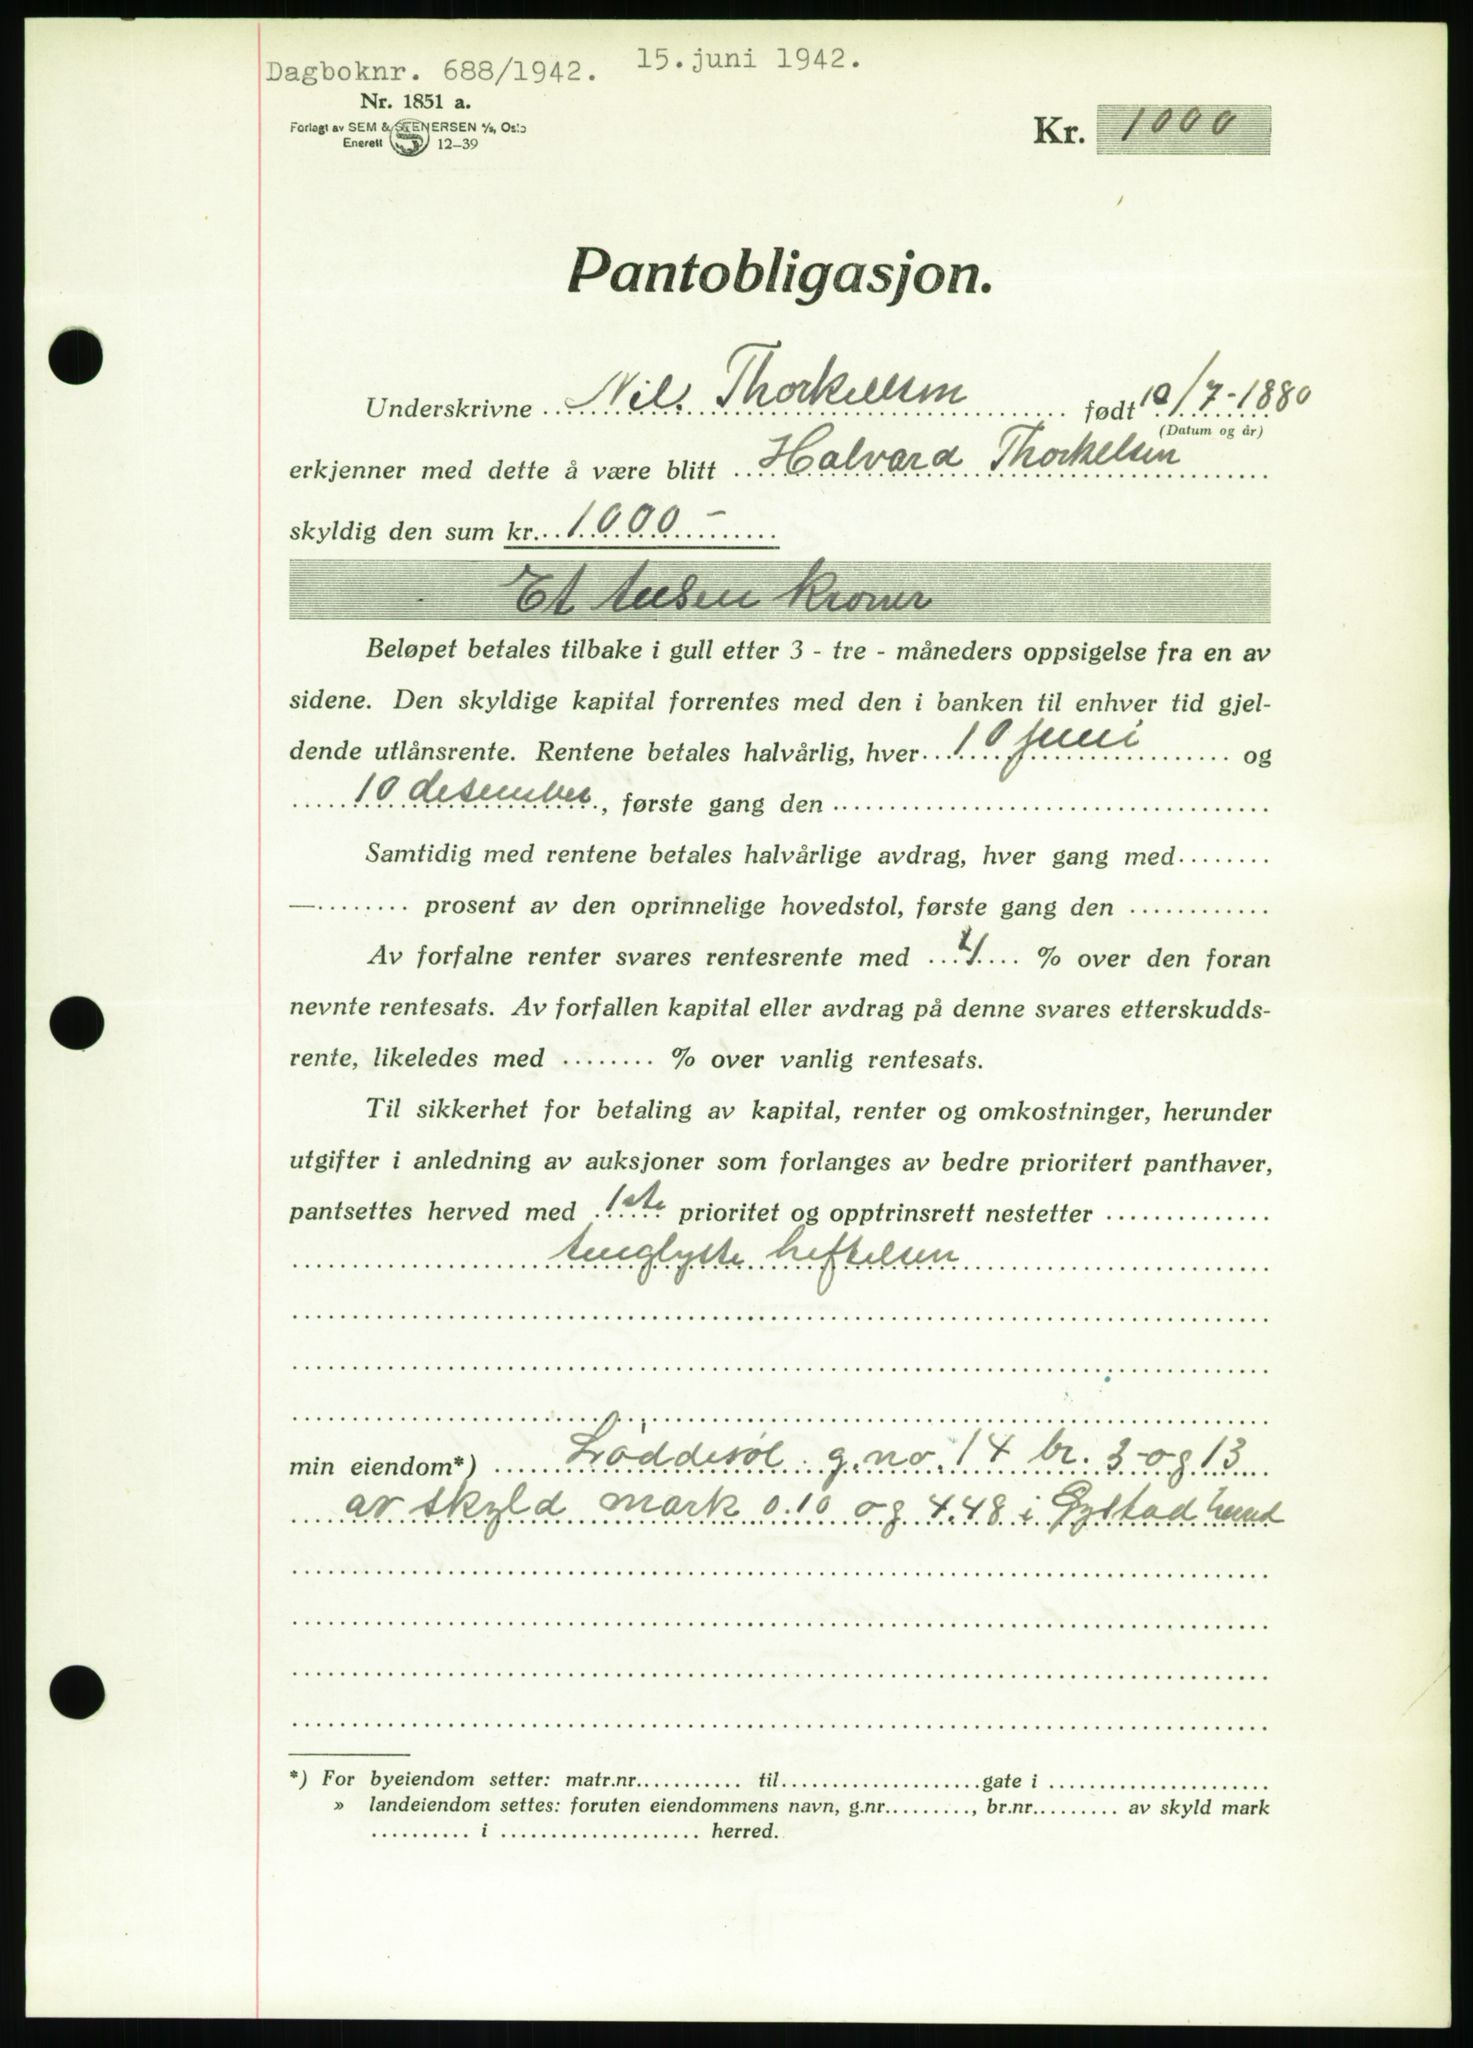 Dagboknr. 688/1942. 15. juni 1942.
Nr. 1851 a.
Forlagt av SEM & STENERSEN A/S, Oslo
Enerett 12-39
Kr. 1000
Pantobligasjon.
Underskrivne Nils Thorkelsen født 10/7-1880
(Datum og år)
erkjenner med dette å være blitt Halvard Thorkelsen
skyldig den sum kr. 1000 -
Et tusen kroner
Beløpet betales tilbake i gull etter 3 - tre - måneders oppsigelse fra en av
sidene. Den skyldige kapital forrentes med den i banken til enhver tid gjel-
dende utlånsrente. Rentene betales halvårlig, hver 10 juni og
10 desember, første gang den
Samtidig med rentene betales halvårlige avdrag, hver gang med
— prosent av den oprinnelige hovedstol, første gang den
Av forfalne renter svares rentesrente med 4 % over den foran
nevnte rentesats. Av forfallen kapital eller avdrag på denne svares etterskudds-
rente, likeledes med % over vanlig rentesats.
Til sikkerhet for betaling av kapital, renter og omkostninger, herunder
utgifter i anledning av auksjoner som forlanges av bedre prioritert panthaver,
pantsettes herved med 1ste prioritet og opptrinsrett nestetter
tinglyste heftelsen
min eiendom*) Løddesøl g.no. 14 br. 3 og 13
av skyld mark 0.10 og 4.48 i Øystad
*) For byeiendom setter: matr.nr. til gate i
» landeiendom settes: foruten eiendommens navn, g.nr. , br.nr. av skyld mark
i herred.